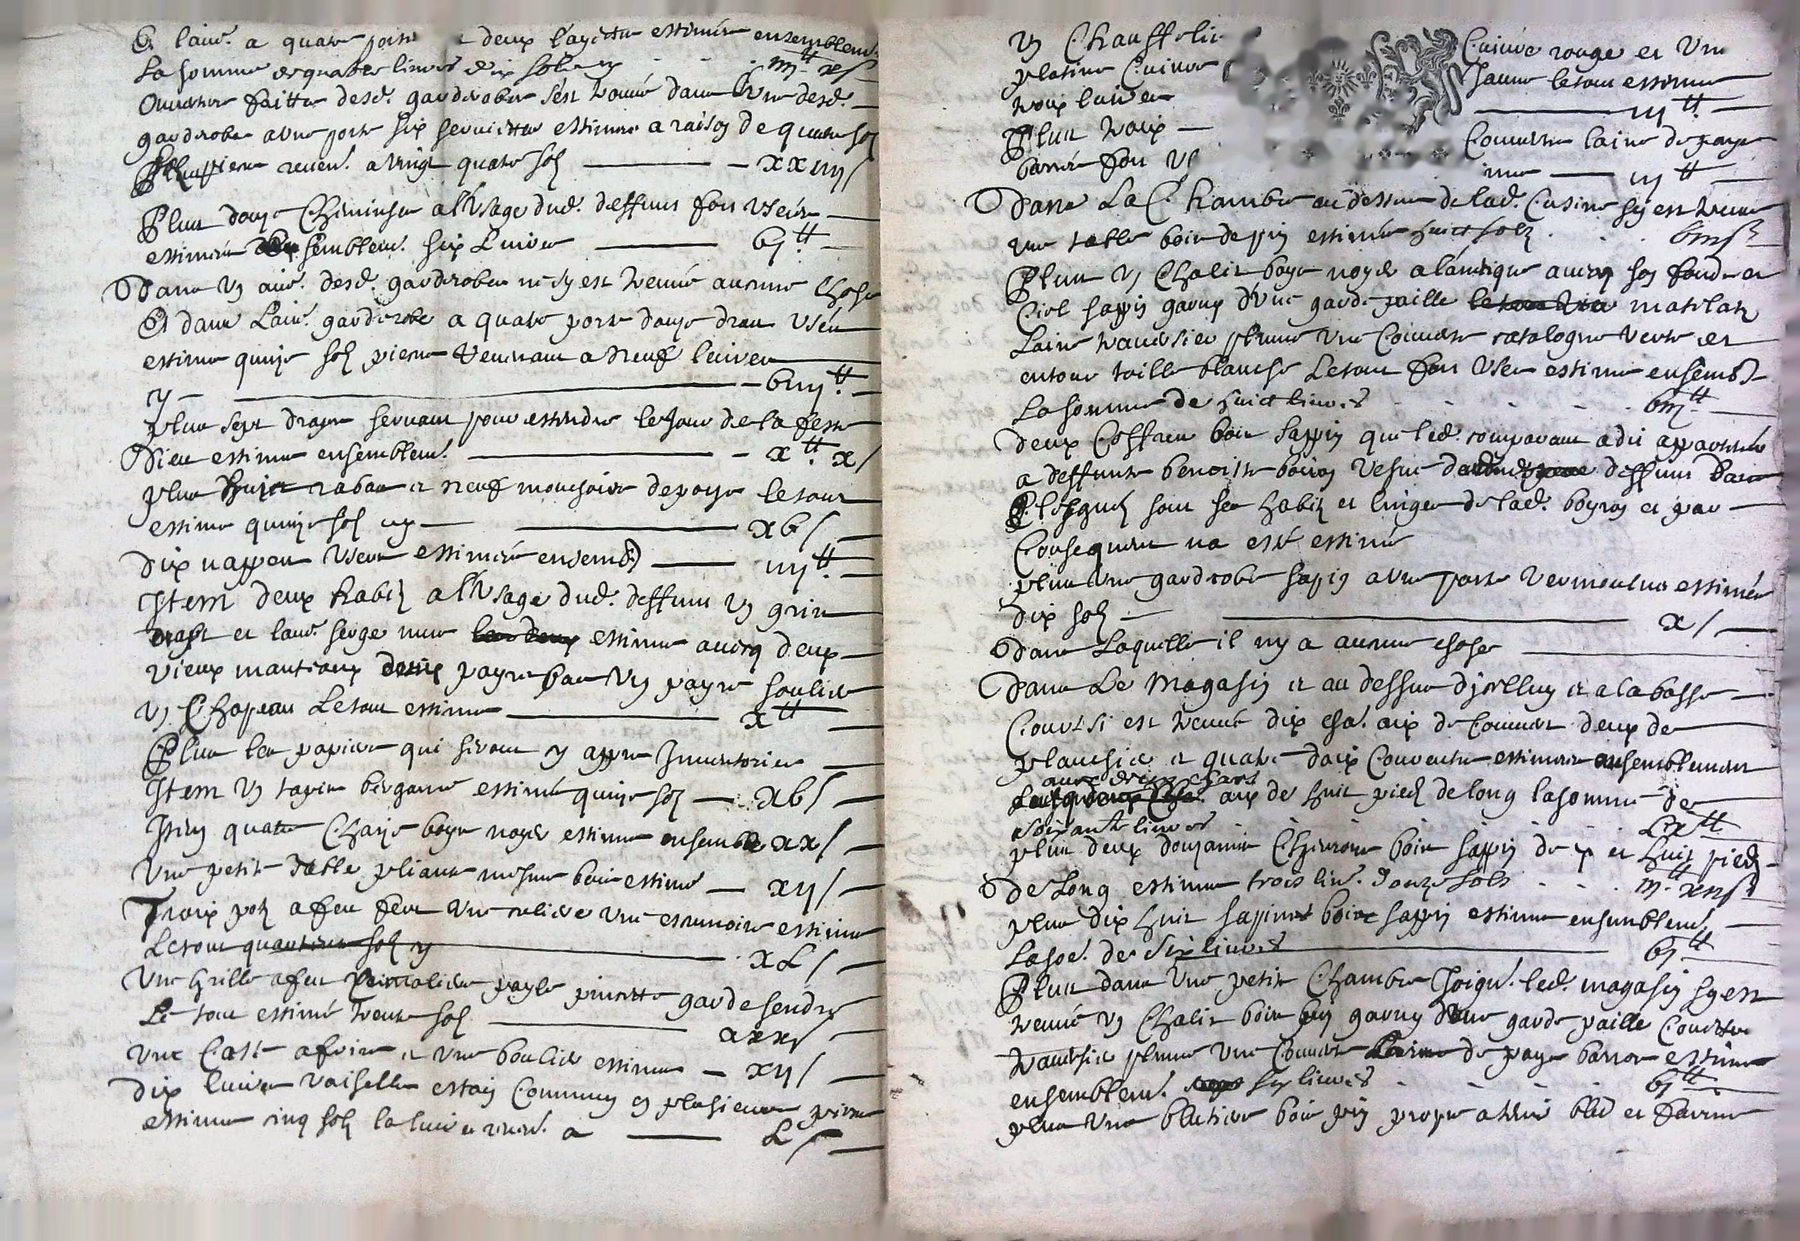 Et lautre a quatre portes deux layettes estimées ensemblem.
La somme de quatre livres dix solz cy iiij₶ x s
Ouverture faitte desd. garderobes sest trouvé dans lune desd.
garderobes a une porte six serviettes estimees a raison de quatre solz
piece reven. a vingt quatre solz xxiiij s
Plus douze Chemises a lusage dud. deffunt fort usées
estimées ensemblem. six Livres vj₶
Dans un autre desd. garderobes ne sy est treuvé aucune chose
Et dans Lautre garderobe a quatre porte douze draps usés
estimes quinze solz piece Revenant a neuf livres
cy viiij₶
plus sept draps servant pour estendre le jour de la feste
Dieu estimes ensemblem. x₶ x s
plus rabas et neuf mouchoirs de poche le tout
estime quinze solz cy xv s
Dix nappes usées estimées ensemb. iiij₶
Item deux habitz a lusage dud. deffunt un gris
drapt et lautre serge noire estimes avecq deux
vieux manteaux payre bas un payre soulier
un Chapeau Le tout estime x₶
Plus les papiers qui seront cy appres Inventoriés
Item un tapis bergame estimé quinze solz xv s
Item quatre Chaize boys noyer estimes ensemble xx s
Une petite Table pliante mesme bois estimé xij s
Trois potz a feu fert une culiere une escumoire estimes
Le tout quarante solz cy xL s
Une grille a feu payle pincette garde sendre
Le tout estimé trente solz xxx s
Une Casse a frire et une bouliere estimes xij s
Dix livres vaiselle estain Commun en plusieurs pieces
estimes cinq solz la livre reven. a L s
un Chauffe lit Cuivre rouge et une
platine Cuivre jaune le tout estimes
trois livres iij₶
Plus trois Couverte laine de pays
barrée fort us iij₶
Dans La Chambre au dessus de lad. Cuisine sy est treuvé
une table bois de pin estimée huict solz viij s
Plus un Chalit boys noyer a lantique avecq son fonds et
Ciel sappin garny dune garde paille matelatz
Laine traversier plume une Couverte catalogne verte et
entour toille blanche Le tout fort usés estimés ensemble
La somme de huict livres viij₶
Deux Coffres bois sappin que led. comparant a dit appartenir
a deffunte benoiste boiron vefve deffunt
Esquelz sont ses habitz et linges de lad. boyron et par
Consequent na esté estimé
plus une garderobe sapin a une porte vermoulue estimée
dix solz x s
Dans Laquelle il ny a aucune chose
Dans Le Magasin et au dessus dicelluy et a la basse
Court si est treuvé dix cha. aix de Couvert deux de
planchie et quatre daix Couverte estimees ensemblement
avec deux chars
aix de huit piedz de long la somme de
soixante livres Lx₶
plus deux douzaine Chevrons bois sappin de x et huit piedz
de Long estimes trois liv. douze solz iij₶ xij s
plus dix huit sapines bois sappin estimes ensemblem.
La so. de six livres vj₶
Plus dans une petite Chambre Joign. led. magasin sy est
treuvé un Chalit bois pin garny dune garde paille Coittre
traversier plume une Couverte de pays barrée estimes
ensemblem. six livres vj₶
plus une blutiere bois pin propre a blé et farine